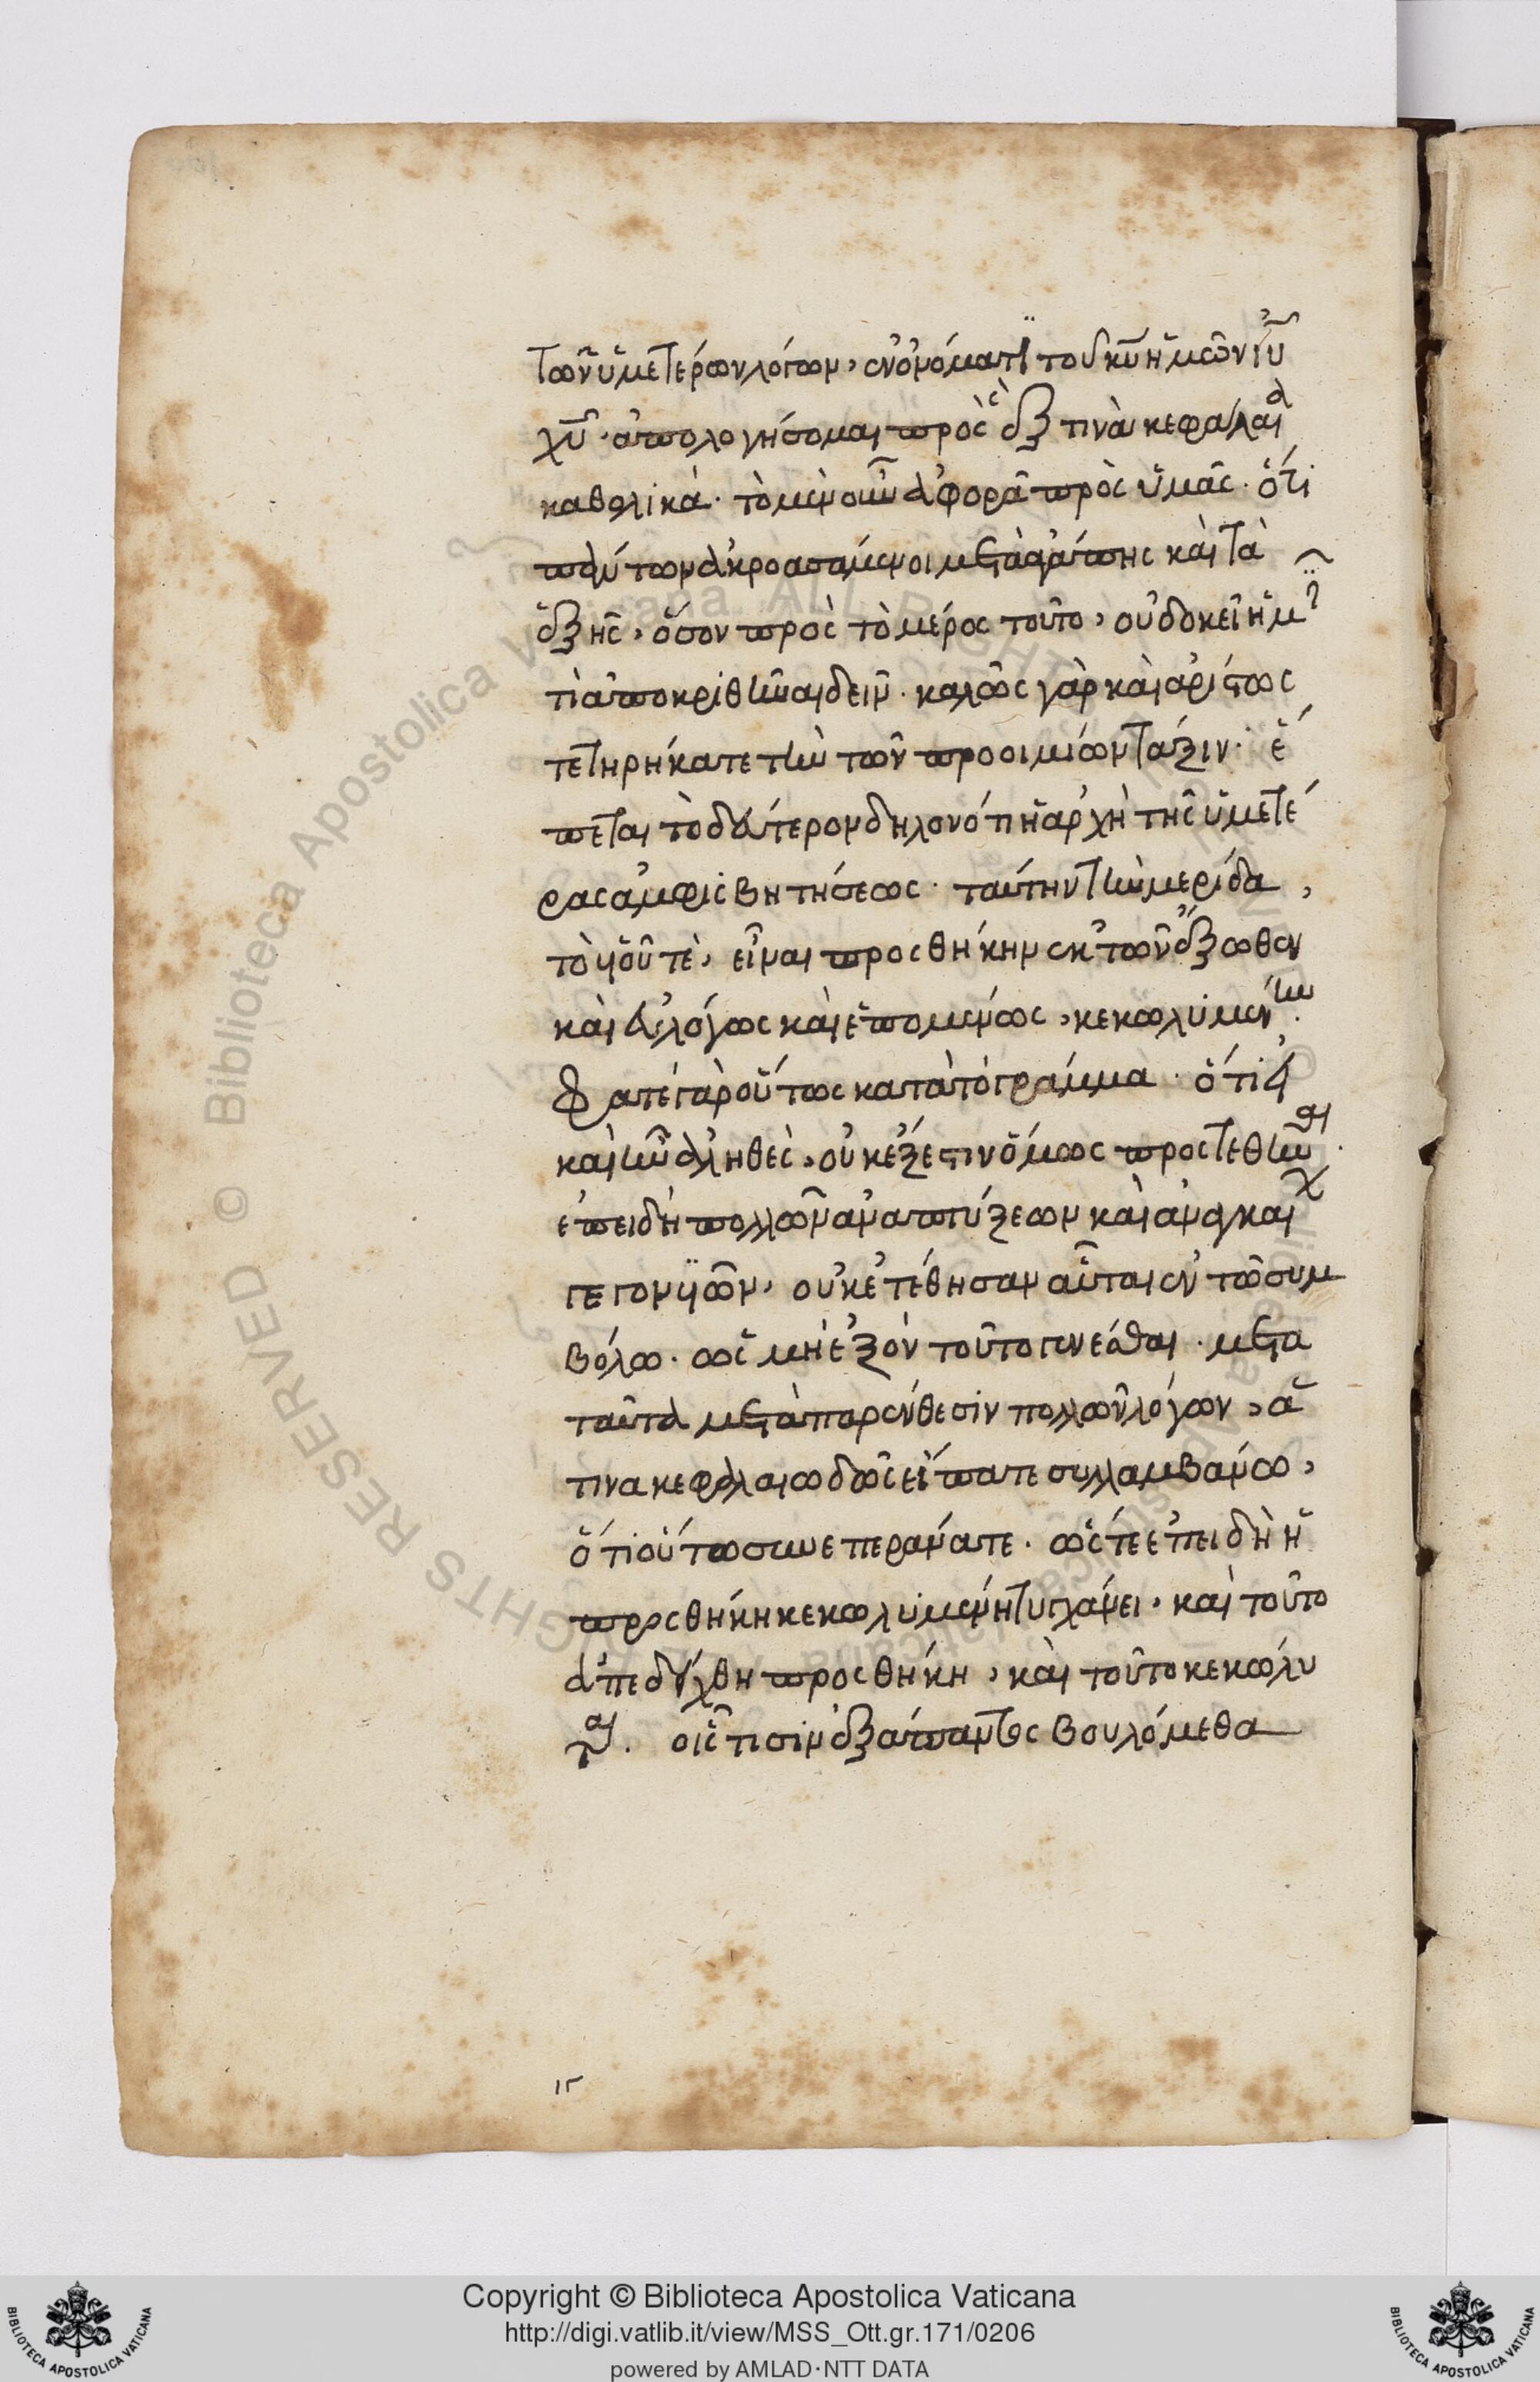 τῶν ὑμετέρων λόγων, ἐν ὀνόματι τοῦ κῡ ἡμῶν ἰῡ
χῡ. ἀπολογήσομαι πρὸς ἕξ τινὰ κεφάλαια
καθολικά. τὸ μὲν οὖν ἀφορᾶ πρὸς ὑμᾶς. ὅτι
πάντων ἀκροασάμενοι μετὰ ἀγάπης καὶ τὰ
ἑξῆς, ὅσον πρὸς τὸ μέρος τοῦτο, οὐ δοκεῖ ἡμῖν
τὶ ἀποκριθῆναι δεῖν. καλῶς γὰρ καὶ ἀρίστως
τετηρήκατε τὴν τῶν προοιμίων τάξιν. ἕ
πεται τὸ δεύτερον δηλονότι ἡ ἀρχὴ τῆς ὑμετέ
ρας ἀμφισβητήσεως. ταύτην τὴν μερίδα,
τὸ υἱοῦ τὲ, εἶναι προσθήκην ἐκ τῶν ἔξωθεν
καὶ εὐλόγως καὶ ἑπομένως, κεκωλυμένην.
φατὲ γὰρ οὕτως κατὰ τὸ γράμμα. ὅτι εἰ
καὶ ἦν ἀληθὲς, οὐκ ἔξεστιν ὅμως προστεθῆναι.
ἐπειδὴ πολλῶν ἀναπτύξεων καὶ ἀναγκαίων
γεγονυιῶν, οὐκ ἐτέθησαν αὗται ἐν τῶ συμ
βόλω. ὡς μὴ ἐξὸν τοῦτο γινέσθαι. μετὰ
ταῦτα μετὰ παρένθεσιν πολλῶν λόγων, ἅ
τινα κεφαλαιωδῶς εἴπατε συλλαμβάνω,
ὅτι οὕτω συνεπεράνατε. ὥστε ἐπειδὴ ἡ
προσθήκη κεκωλυμένη τυγχάνει, καὶ τοῦτο
ἀπεδείχθη προσθήκη, καὶ τοῦτο κεκώλυ
ται. οἷς τισὶν ἐξ ἅπαντος βουλόμεθα
ιε
Copyright © Biblioteca Apostolica Vaticana
http://digi.vatlib.it/view/MSS_Ott.gr.171/0206
powered by AMLAD·NTT DATA